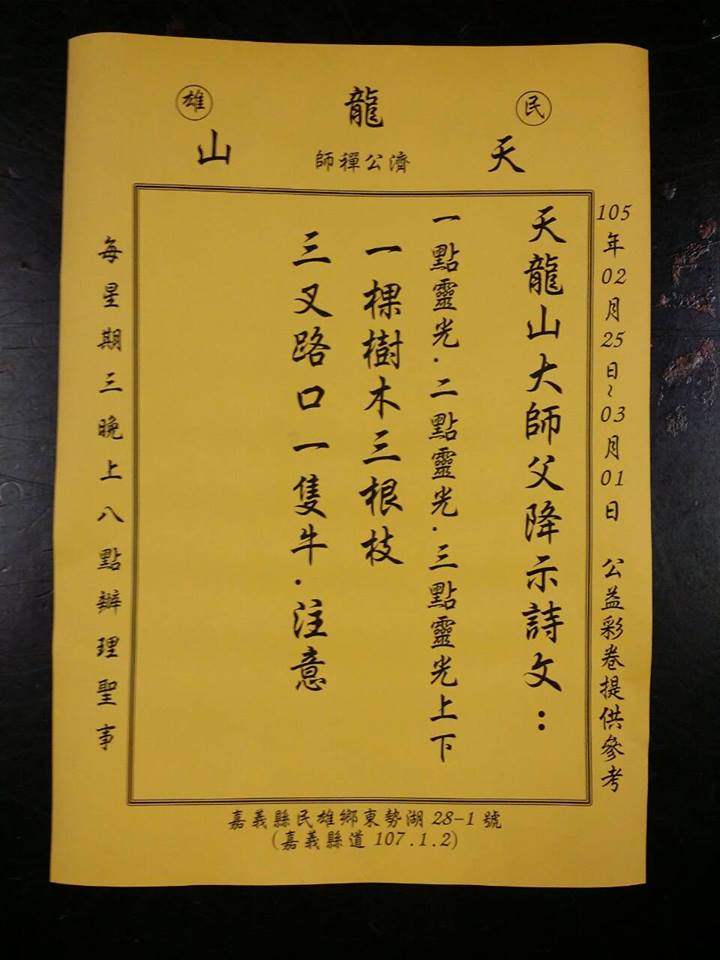 民 雄
天 龍 山
濟公禪師
105年02月25日~03月01日 公益彩卷提供參考
天龍山大師父降示詩文：
一點靈光．二點靈光．三點靈光上下
一棵樹木三根枝
三叉路口一隻牛．注意
每星期三晚上八點辦理聖事
嘉義縣民雄鄉東勢湖 28-1 號
(嘉義縣道 107.1.2)